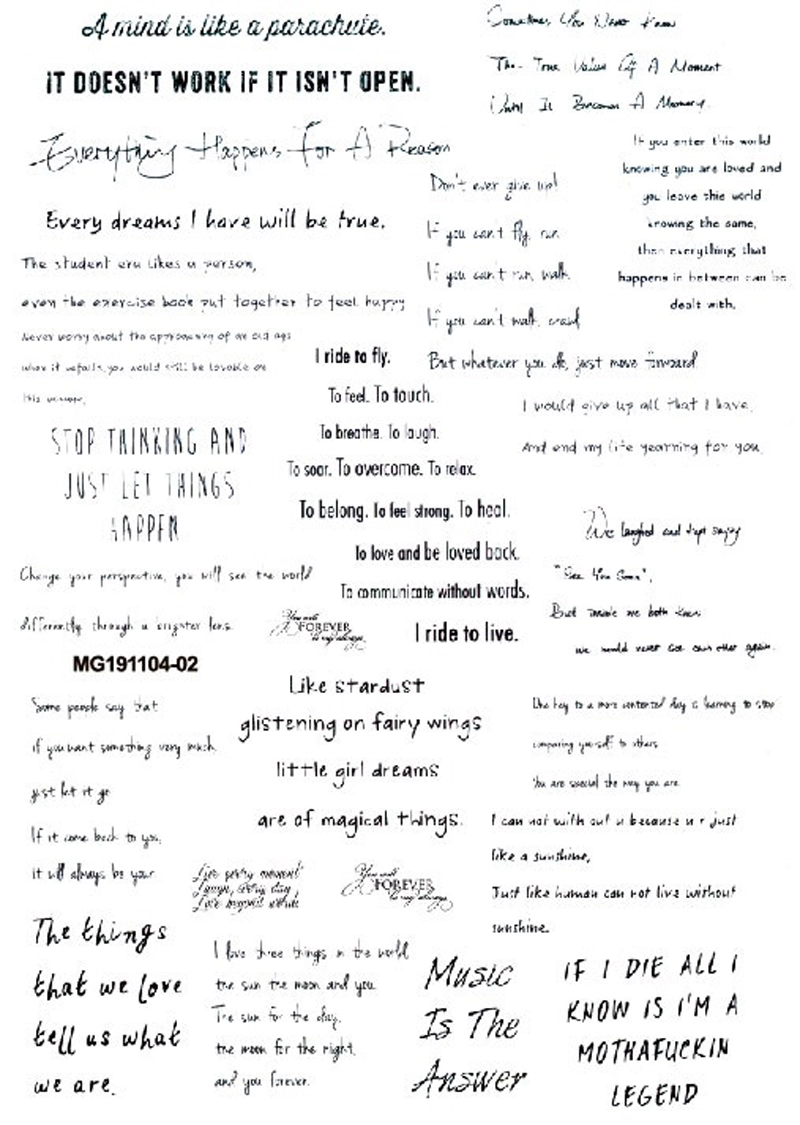 A mind is like a parachute.
IT DOESN'T WORK IF IT ISN'T OPEN.
Sometimes You Never Know
The True Value Of A Moment
Until It Becomes A Memory.
Everything Happens For A Reason
If you enter this world
knowing you are loved and
you leave this world
knowing the same,
then everything that
happens in between can be
dealt with.
Don't ever give up!
If you can't fly, run
If you can't run, walk
If you can't walk, crawl
But whatever you do, just move forward
Every dreams I have will be true.
The student eru likes a person,
even the exercise book put together to feel happy
Never worry about the approaching of an old age
when it you would still be lovable on
this
I ride to fly.
To feel. To touch.
To breathe. To laugh.
To soar. To overcome. To relax.
To belong. To feel strong. To heal.
To love and be loved back.
To communicate without words.
I ride to live.
I would give up all that I have,
And end my life yearning for you
STOP THINKING AND
JUST LET THINGS
HAPPEN
We laughed and kept saying
"See You Soon",
But inside we both knew
we would never see each other again.
Change your perspective, you will see the world
differently through a brighter lens.
You will
FOREVER
be my always
MG191104-02
Some people say that
if you want something very much
just let it go
If it come back to you,
it will always be your
Like stardust
glistening on fairy wings
little girl dreams
are of magical things.
One key to a more contented day is learning to stop
comparing yourself to others
You are special the way you are
I can not with out u because u r just
like a sunshine,
Just like human can not live without
sunshine.
Live every moment
Laugh every day,
Love beyond words
You will
FOREVER
be my always
The things
that we love
tell us what
we are.
I love three things in the world
the sun the moon and you
The sun for the day,
the moon for the night,
and you forever.
Music
Is The
Answer
IF I DIE ALL I
KNOW IS I'M A
MOTHAFUCKIN
LEGEND